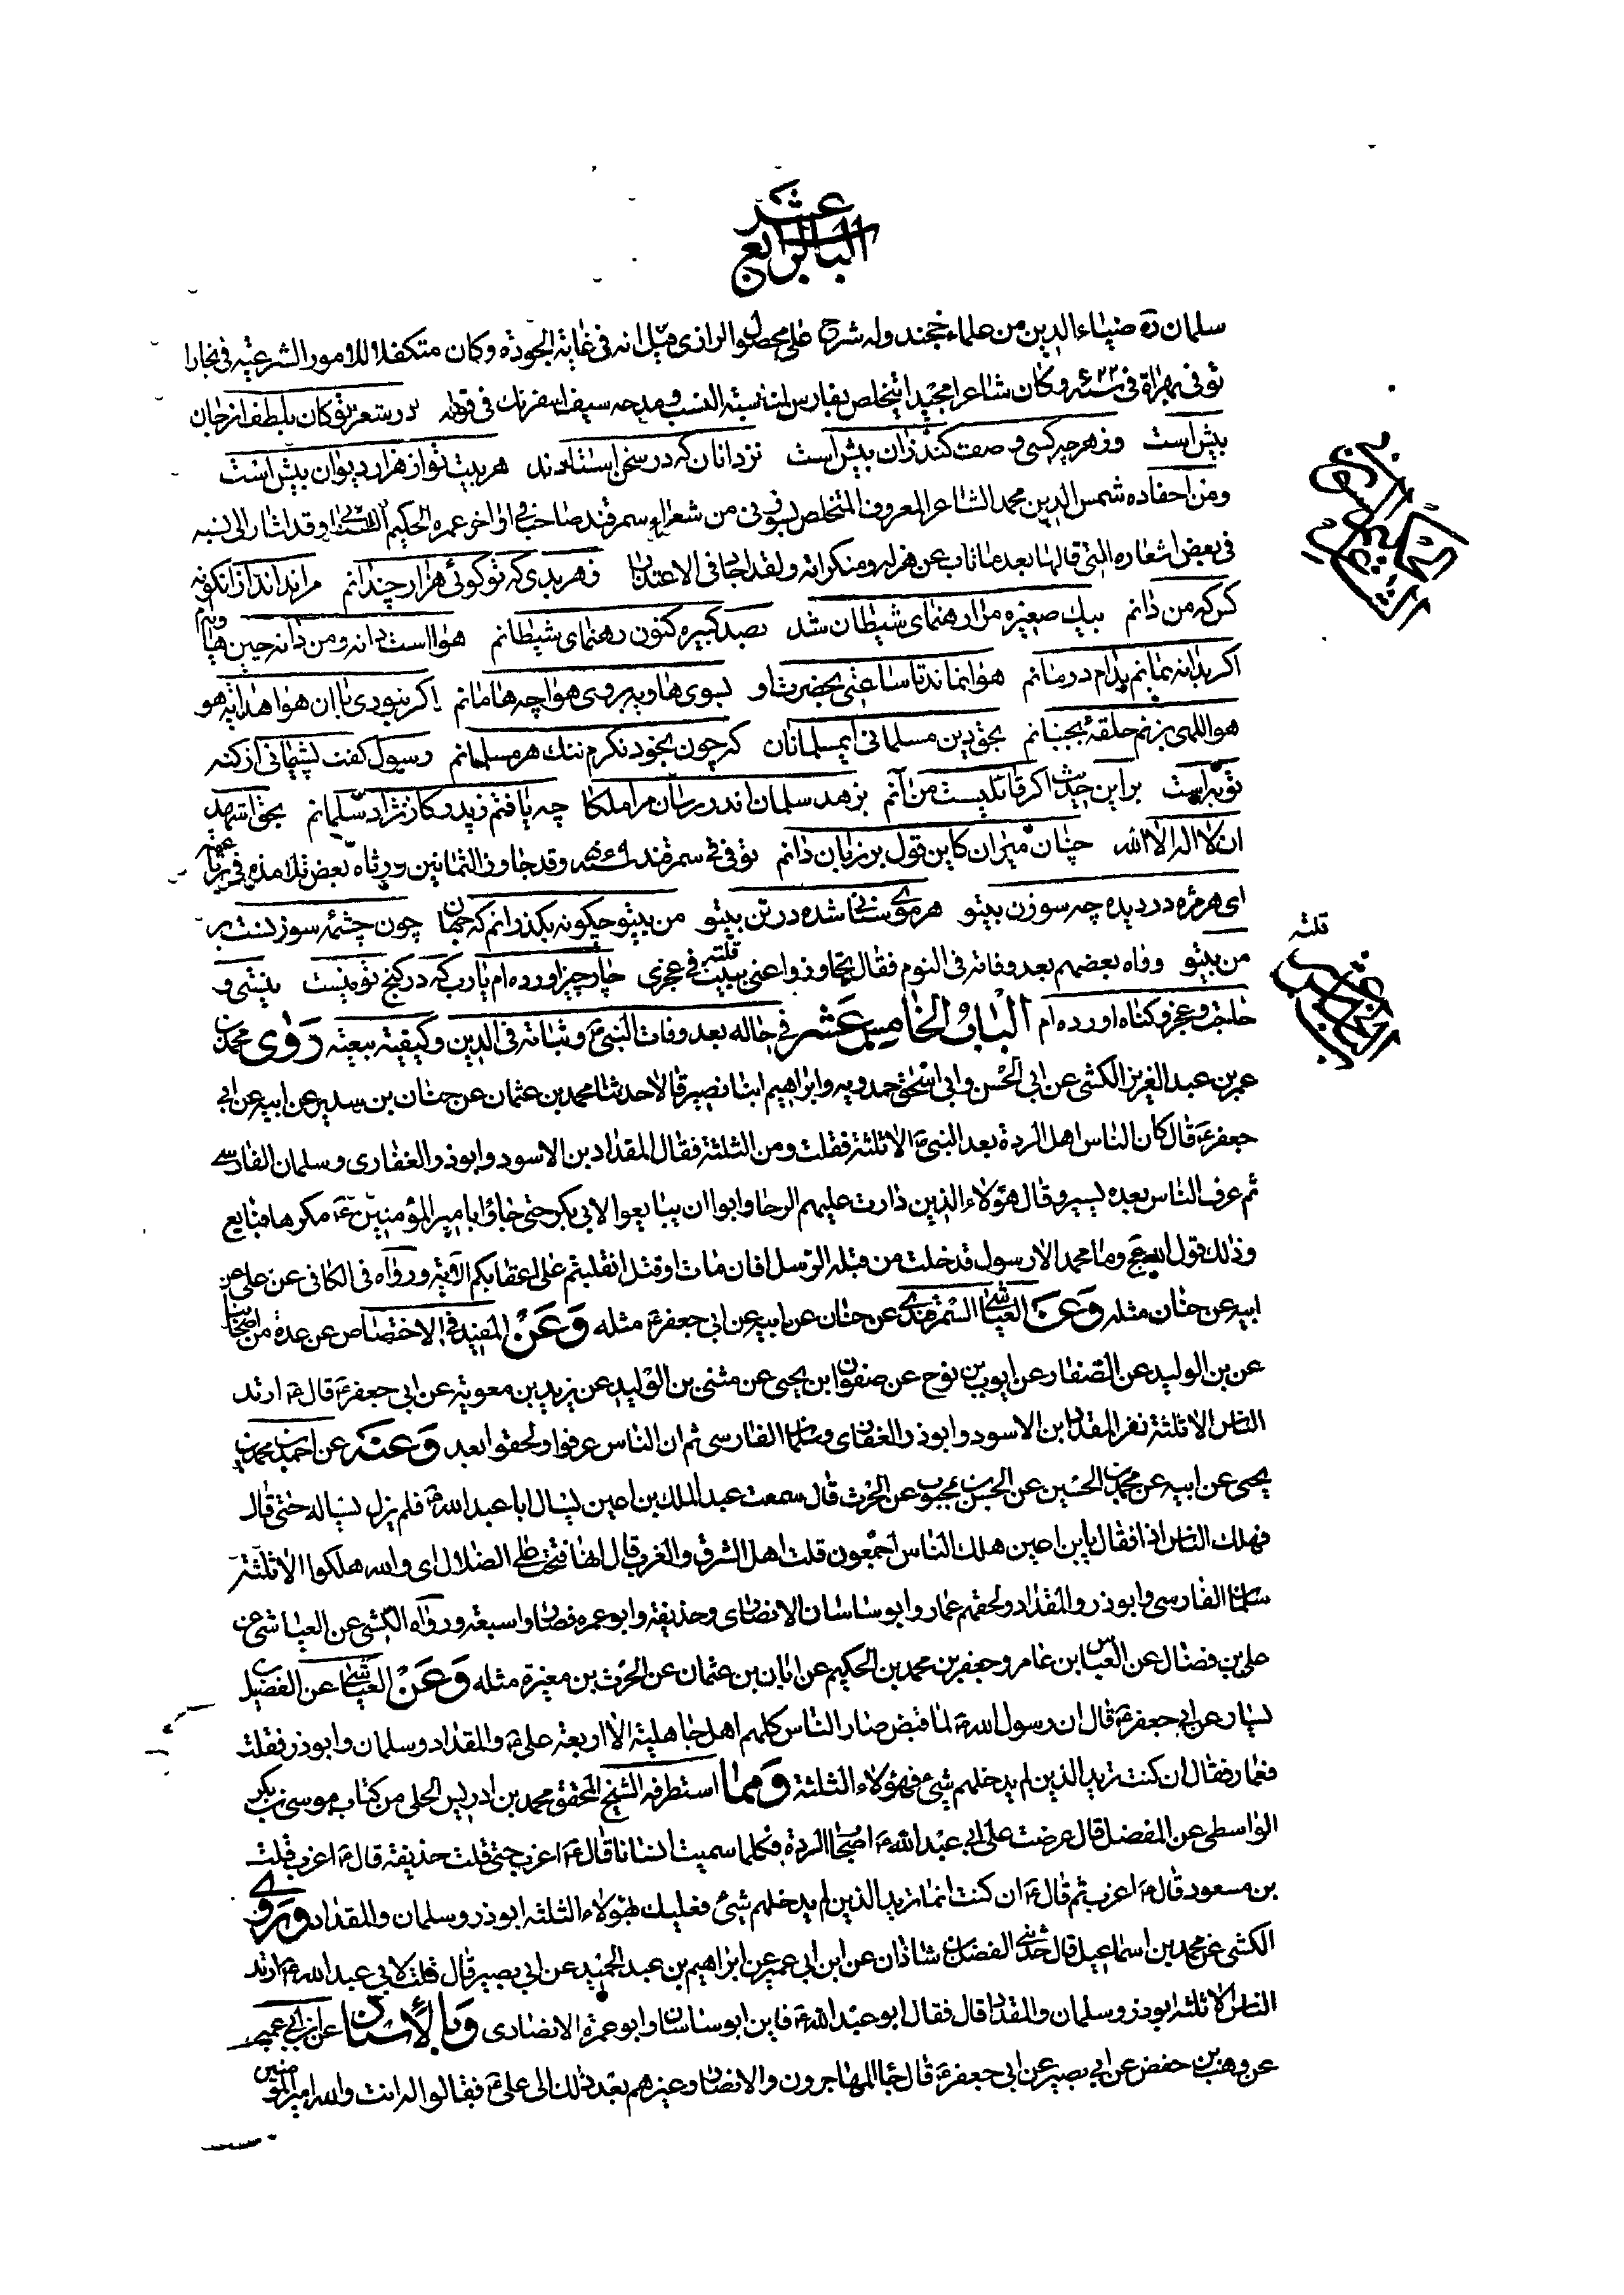 الباب الرابع عشر
سلمان ره ضياء الدين من علماء خجند وله شرح على محصول الرازى قيل انه فى غاية الجودة وكان متكفلا للامور الشرعية فى بخارا
توفى بهراة فى سنة ٦٢٢ وكان شاعرا مجيدا يتخلص بفارس لمناسبة النسب ومدحه سيف اسفرنك فى قوله در شعر تو كان بلطف از جان
بيش است وز هرچه كسى وصف كند زان بيش است نزد انان كه در سخن استادند هر بيت تو از هزار ديوان بيش است
ومن احفاده شمس الدين محمد الشاعر المعروف المتخلص بسوزنى من شعراء سمرقند صاحب فى اواخر عمره الحكيم السنائى وقد اشار الى نسبه
فى بعض اشعاره التى قالها بعد ما تاب عن هزله ومنكراته ولقد اجاد فى الاعتذار زهر بدى كه تو كوئى هزار چندانم مرا نداند ازانكونه
كس كه من دانم بيك صغيره مرا رهنماى شيطان شد بصد كبيره كنون رهنماى شيطانم هوا است دانه و من دانه چين هاويه دام
اكر بدانه بمانم بدام درمانم هوا نماند تا ساعتى بحضرت او بسوى هاويه بروى هوا چه ها مانم اكر نبودى با ان هوا هدايه هو
هو اللهى بزنم حلقه بجنبانم بحق دين مسلمانى ايمسلمانان كه چون بخود نكرم ننك هر مسلمانم رسول كفت پشيمانى از كنه
توبه است بر اين حديث اكر قائليست من آنم بزهد سلمان اندر رسان مرا ملكا چه يافتم ز پدر كز نژاد سلمانم بحق اشهد
ان لا اله الا الله چنان ميران كاين قول بر زبان دانم توفى فى سمرقند سنة ٥٦٩ وقد جاوز الثمانين ورثاه بعض تلامذه فى رباعية
اى هر مژه در ديده چه سوزن بيتو هر موى سنانى شده در تن بيتو من بيتو چكونه بكذرانم كه جهان چون چشمه سوزنست بر
من بيتو وراه بعضهم بعد وفاته فى النوم فقال تجاوزوا عنى ببيت قلته فى عجزى چار چيز اورده ام يارب كه در كنج تو نيست نيستى و
قلته
حاجت و عجز و كناه اورده ام الباب الخامس عشر فى حاله بعد وفات النبى ص وثباته فى الدين وكيفية بيعته روى محمد بن
عمر بن عبد العزيز الكشى عن ابى الحسن وابى اسحق حمدويه وابراهيم ابنا نصير قالا حدثنا محمد بن عثمان عن حنان بن سدير عن ابيه عن ابى
جعفر ع قال كان الناس اهل الردة بعد النبى ص الا ثلثة فقلت ومن الثلثة فقال المقداد بن الاسود وابوذر الغفارى وسلمان الفارسى
ثم عرف الناس بعده يسير وقال هؤلاء الذين دارت عليهم الرحا وابوا ان يبايعوا لابى بكر حتى جاؤا بامير المؤمنين ع مكرها فبايع
وذلك قول الله عج وما محمد الا رسول قد خلت من قبله الرسل افان مات او قتل انقلبتم على اعقابكم الآية ورواه فى الكافى عن على عن
ابيه عن حنان مثله وعن العياشى السمرقندى عن حنان عن ابيه عن ابى جعفر ع مثله وعن المفيد فى الاختصاص عن عدة من اصحابنا
عن بن الوليد عن الصفار عن ايوب بن نوح عن صفوان ابن يحيى عن مثنى بن الوليد عن بريد بن معوية عن ابى جعفر ع قال ع ارتد
الناس الا ثلثة نفر المقداد ابن الاسود وابوذر الغفارى وسلمان الفارسى ثم ان الناس عرفوا ولحقوا بعد وعنه عن احمد بن محمد بن
يحيى عن ابيه عن محمد بن الحسين عن الحسن بن محبوب عن الحرث قال سمعت عبد الملك بن اعين يسال ابا عبد الله ع فلم يزل يساله حتى قال
فهلك الناس اذا فقال يابن اعين هلك الناس اجمعون قلت اهل الشرق والغرب قال انها فتحت على الضلال اى والله هلكوا الا ثلثة
سلمان الفارسى وابوذر والمقداد ولحقهم عمار وابو ساسان الانصارى وحذيفة وابو عمره فصاروا سبعة ورواه الكشى عن العياشى عن
على بن فضال عن العباس ابن عامر وجعفر بن محمد بن الحكيم عن ابان بن عثمان عن الحرث بن مغيرة مثله وعن العياشى عن الفضيل بن
يسار عن ابى جعفر ع قال ان رسول الله ص لما قبض صار الناس كلهم اهل جاهلية الا اربعة على ع والمقداد وسلمان وابوذر فقلت
فعمار فقال ان كنت تريد الذين لم يدخلهم شىء فهؤلاء الثلثة ومما استطرفه الشيخ المحقق محمد بن ادريس الحلى من كتاب موسى بن بكر
الواسطى عن المفضل قال عرضت على ابى عبد الله ع اصحاب الردة فكلما سميت انسانا قال ع اعزب حتى قلت حذيفة قال ع اعزب قلت
بن مسعود قال ع اعزب ثم قال ع ان كنت انما تريد الذين لم يدخلهم شىء فعليك بهؤلاء الثلثه ابوذر وسلمان والمقداد وروى
الكشى عن محمد بن اسماعيل قال حدثنى الفضل بن شاذان عن ابن ابى عمير عن ابراهيم بن عبد الحميد عن ابى بصير قال قلت لابى عبد الله ع ارتد
الناس الا ثلثه ابوذر وسلمان والمقداد قال فقال ابو عبد الله ع فاين ابو ساسان وابو عمرة الانصارى وبالاسناد عن ابن ابى عمير
عن وهب بن حفص عن ابى بصير عن ابى جعفر ع قال جاء المهاجرون والانصار وغيرهم بعد ذلك الى على ع فقالوا له انت والله امير المؤمنين